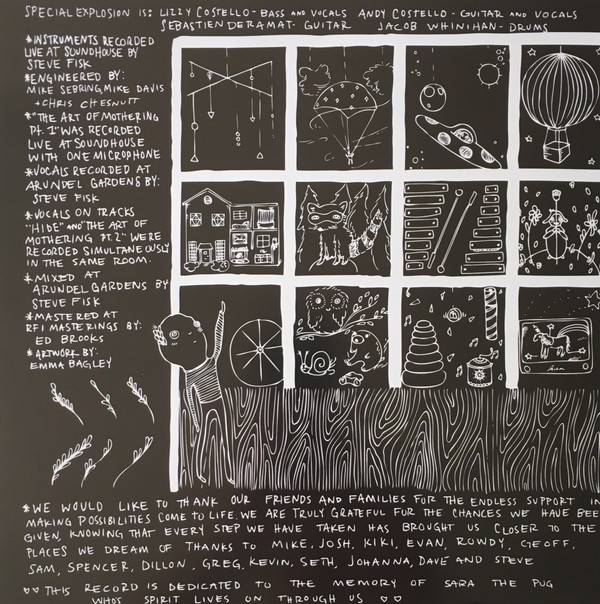 SPECIAL EXPLOSION IS: LIZZY COSTELLO - BASS AND VOCALS ANDY COSTELLO - GUITAR AND VOCALS
SEBASTIEN DERAMAT- GUITAR JACOB WHINIHAN- DRUMS
*INSTRUMENTS RECORDED
LIVE AT SOUNDHOUSE BY
STEVE FISK
*ENGINEERED BY:
MIKE SEBRING, MIKE DAVIS
+ CHRIS CHESNUTT
*"THE ART OF MOTHERING
PT. 1" WAS RECORDED
LIVE AT SOUNDHOUSE
WITH ONE MICROPHONE
*VOCALS RECORDED AT
ARUNDEL GARDENS BY:
STEVE FISK
*VOCALS ON TRACKS
"HIDE" AND "THE ART OF
MOTHERING PT. 2" WERE
RECORDED SIMULTANEOUSLY
IN THE SAME ROOM.
*MIXED AT
ARUNDEL GARDENS BY
STEVE FISK
*MASTERED AT
RFI MASTERINGS BY:
ED BROOKS
*ARTWORK BY:
EMMA BAGLEY
*WE WOULD LIKE TO THANK OUR FRIENDS AND FAMILIES FOR THE ENDLESS SUPPORT IN
MAKING POSSIBILITIES COME TO LIFE. WE ARE TRULY GRATEFUL FOR THE CHANCES WE HAVE BEE
GIVEN, KNOWING THAT EVERY STEP WE HAVE TAKEN HAS BROUGHT US CLOSER TO THE
PLACES WE DREAM OF THANKS TO MIKE, JOSH, KIKI, EVAN, ROWDY, GEOFF,
SAM, SPENCER, DILLON, GREG, KEVIN, SETH, JOHANNA, DAVE AND STEVE
♡♡ THIS RECORD IS DEDICATED TO THE MEMORY OF SARA THE PUG
WHO'S SPIRIT LIVES ON THROUGH US ♡♡